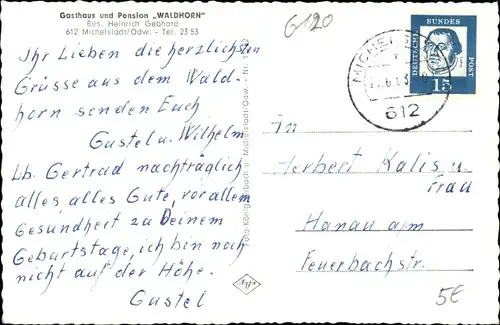 Gasthaus und Pension „WALDHORN"
Bes. Heinrich Gebhard
612 Michelstadt/Odw. - Tel. 23 53
Ihr Lieben die herzlichsten
Grüsse aus dem Wald-
horn senden Euch
Gustel u. Wilhelm
Lb. Gertrad nachträglich
alles alles Gute, vor allem
Gesundheit zu Deinem
Geburtstage, ich bin noch
nicht auf der Höhe.
Gustel
6120
MICHEL
612
DEUTSCHE BUNDES POST
15
An
Herbert Kalis u
Frau
Hanau a/m
Feuerbachstr.
5€